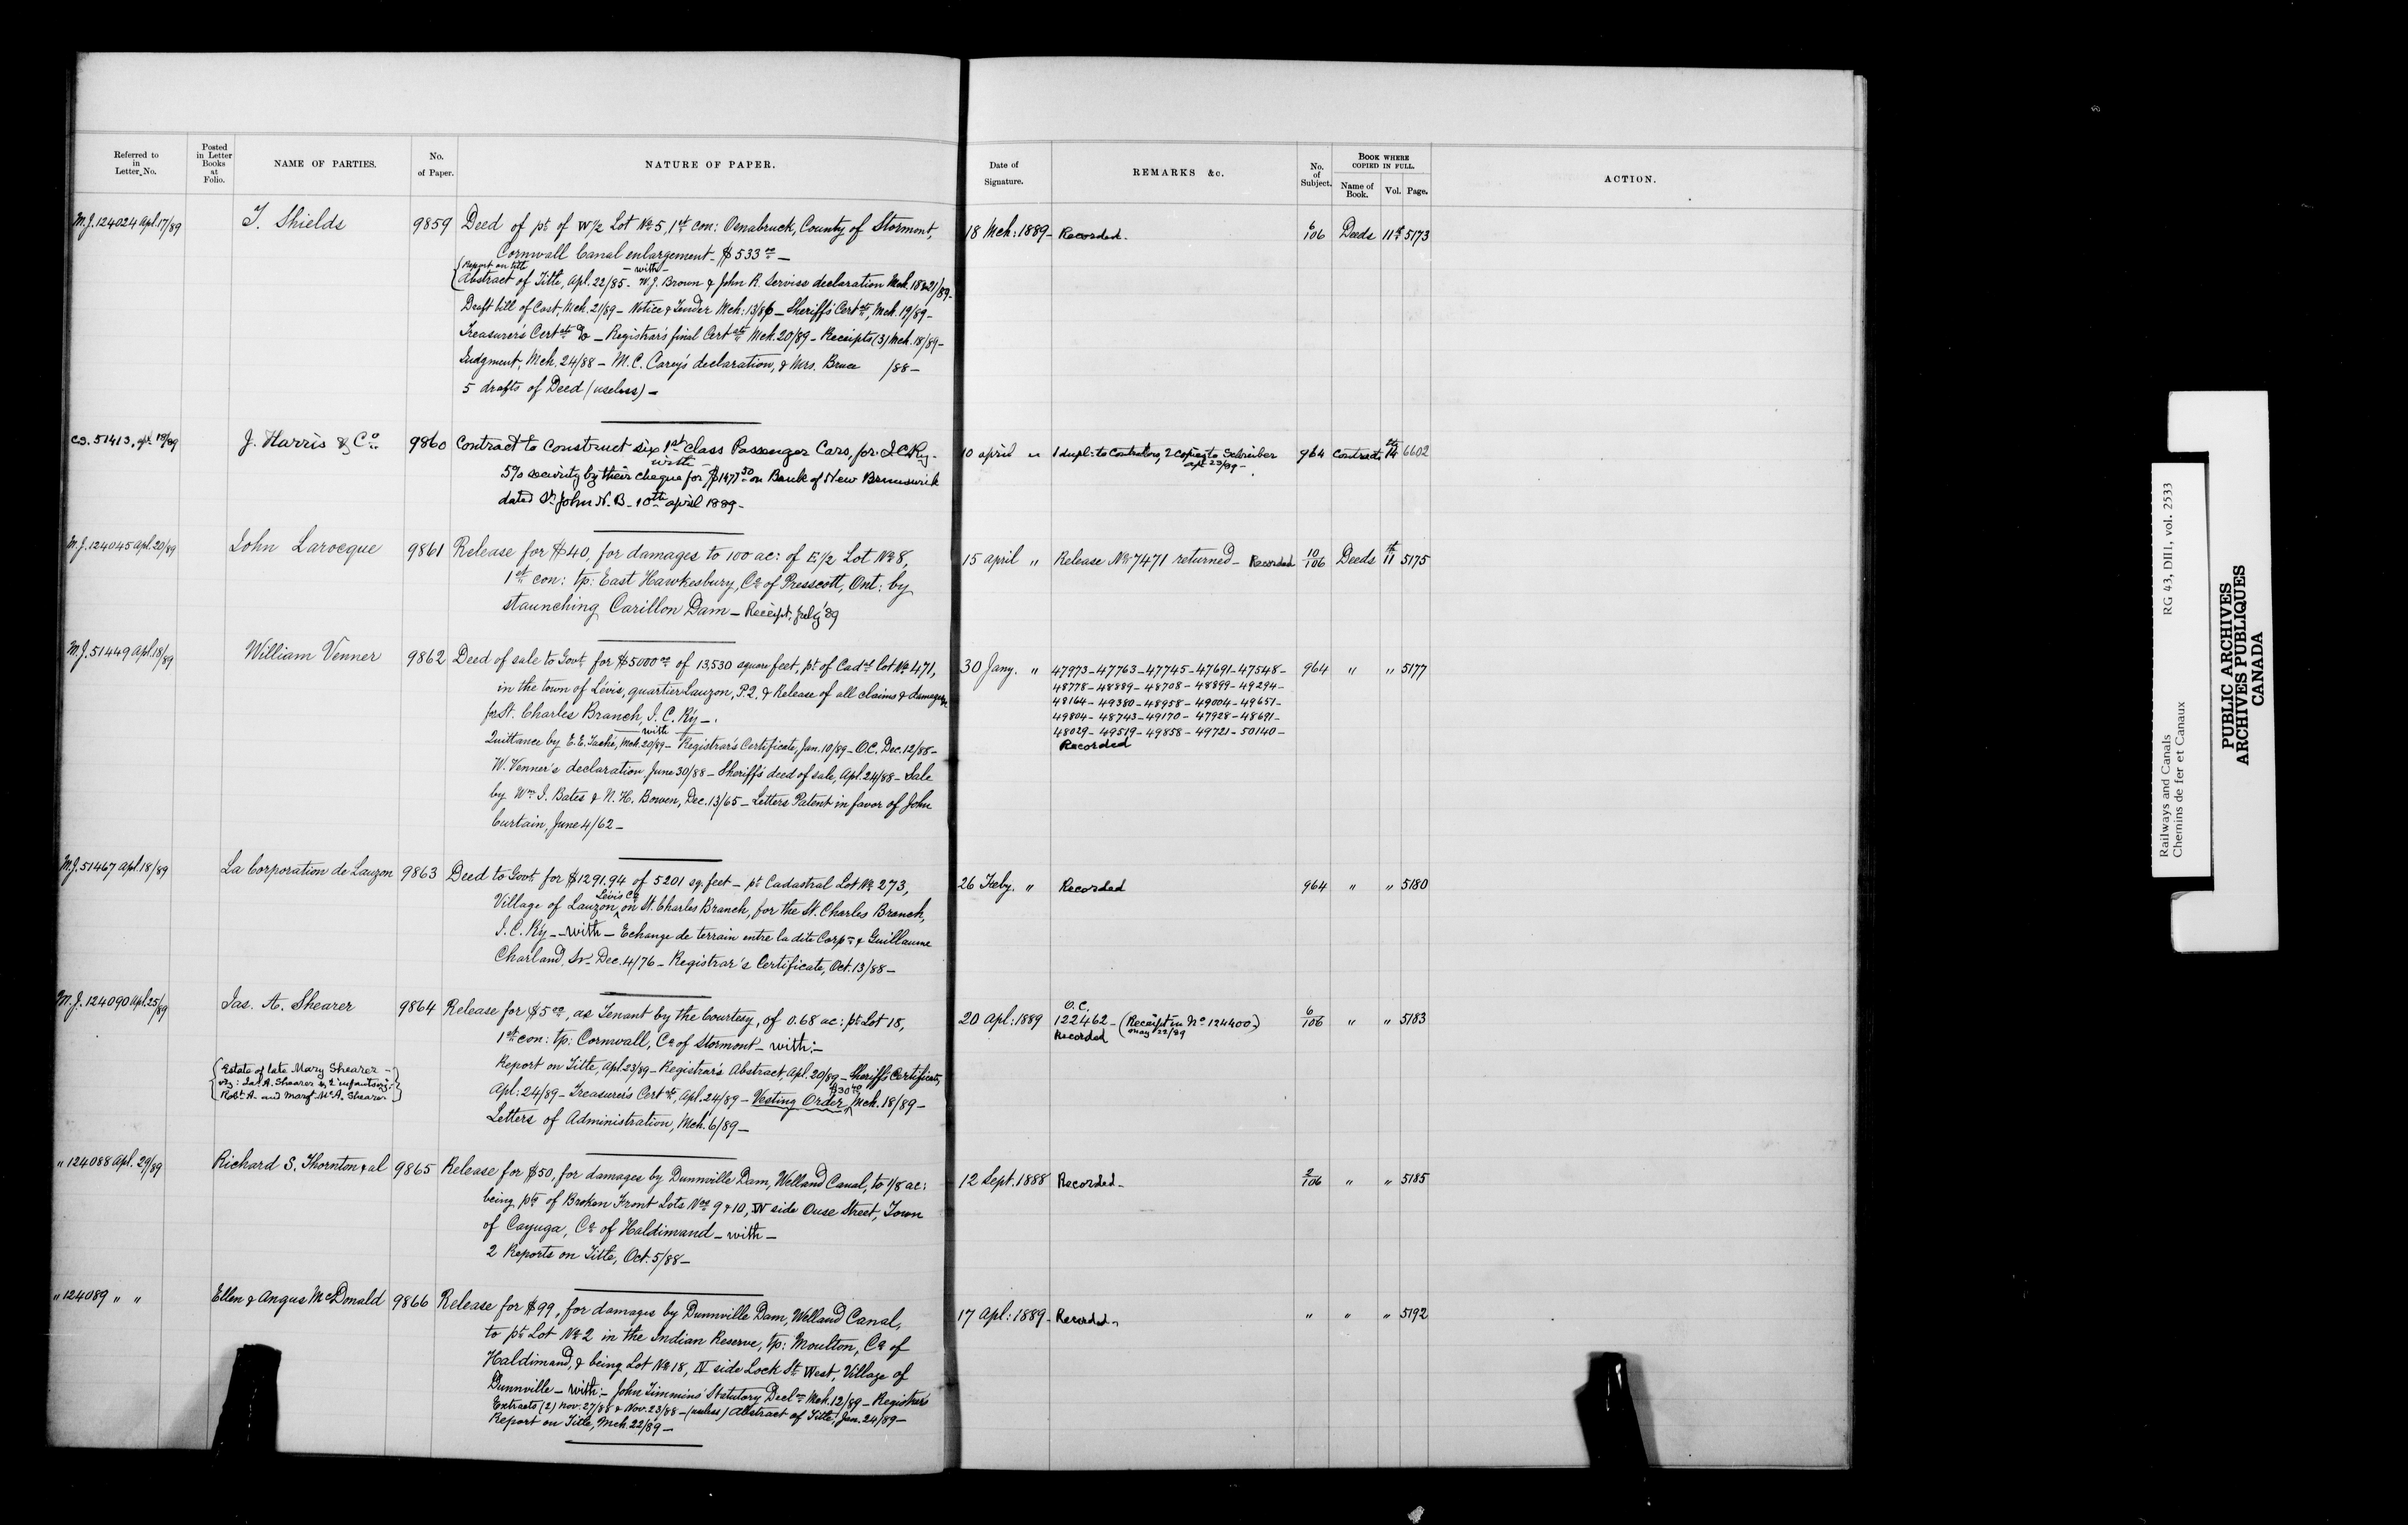 Referred to in Letter No.
Posted in Letter Books at Folio.
NAME OF PARTIES.
No. of Paper.
NATURE OF PAPER.
Date of Signature.
REMARKS &c.
No. of Subject.
BOOK WHERE COPIED IN FULL.
Name of Book.
Vol.
Page.
ACTION.
M.J. 124024 Apl. 17/89 T. Shields 9859 Deed of pt of W 1/2 Lot No 5, 1st con: Osnabruck, County of Stormont, 18 Mch: 1889 - Recorded. 6/106 Deeds 11th 5173
Cornwall Canal enlargement - $533.00 -
- with -
Report on title
Abstract of Title, Apl. 22/85 - W.J. Brown & John R. Serviss declaration Mch. 18 & 21/89 -
Draft bill of Cost, Mch. 21/89 - Notice & Tender Mch: 13/86 - Sheriff's Certate, Mch. 19/89 -
Treasurer's Certate Do - Registrar's final Certate Mch. 20/89 - Receipts (3) Mch. 18/89 -
Judgment, Mch. 24/88 - M.C. Carey's declaration, & Mrs. Bruce /88 -
5 drafts of Deed (useless) -
CS. 51413, apl. 19/89 J. Harris & Co 9860 Contract to Construct six 1st Class Passenger Cars, for I.C.Ry. 10 april " 1 dupl: to Contractors, 2 Copies to Schreiber 964 Contracts 14th 6602
apl 23/89 -
with -
5% security by their cheque for $1477.50 on Bank of New Brunswick
dated St John N.B. 10th april 1889 -
M.J. 124045 Apl. 20/89 John Larocque 9861 Release for $40, for damages to 100 ac: of E 1/2 Lot No 8, 15 april " Release No 7471 returned - Recorded 10/106 Deeds 11th 5175
1st con: tp: East Hawkesbury, Co of Prescott, Ont: by
staunching Carillon Dam - Receipt, July '89
M.J. 51449 Apl. 18/89 William Venner 9862 Deed of sale to Govt for $5000.00 of 13,530 square feet, pt of Cadal lot No 471, 30 Jany. " 47973 - 47763 - 47745 - 47691 - 47548 - 964 " " 5177
in the town of Lévis, quartier Lauzon, P.Q. & Release of all claims & damages 48778 - 48889 - 48708 - 48899 - 49294 -
for St. Charles Branch, I.C. Ry - 49164 - 49380 - 48958 - 49004 - 49651 -
- with - 49804 - 48743 - 49170 - 47928 - 48691 -
Quittance by E.E. Taché, Mch. 20/89 - Registrar's Certificate, Jan. 10/89 - O.C. Dec. 12/88 - 48029 - 49519 - 49858 - 49721 - 50140 -
Recorded
W. Venner's declaration June 30/88 - Sheriff's deed of sale, Apl. 24/88 - Sale
by Wm I. Bates & N.H. Bowen, Dec. 13/65 - Letters Patent in favor of John
Curtain, June 4/62 -
M.J. 51467 Apl. 18/89 La Corporation de Lauzon 9863 Deed to Govt for $1291.94 of 5201 sq. feet - pt Cadastral Lot No 273, 26 Feby. " Recorded 964 " " 5180
Lévis Co
Village of Lauzon, on St. Charles Branch, for the St. Charles Branch,
I.C. Ry - with - Echange de terrain entre la dite Corpn & Guillaume
Charland, Sr. Dec. 4/76 - Registrar's Certificate, Oct. 13/88 -
M.J. 124090 Apl. 25/89 Jas. A. Shearer 9864 Release for $5.00, as Tenant by the Courtesy, of 0.68 ac: pt Lot 18, 20 Apl: 1889 O.C. 122462 - (Receipt in No 124400) 6/106 " " 5183
may 22/89
Recorded
1st con: tp: Cornwall, Co of Stormont - with: -
Estate of late Mary Shearer -
viz: Jas. A. Shearer & 2 infants viz:
Robt A. and Margt McA. Shearer
Report on Title, Apl. 23/89 - Registrar's Abstract, Apl. 20/89 - Sheriff's Certificate,
$30.40
Apl: 24/89 - Treasurer's Certate, Apl. 24/89 - Vesting Order, Mch. 18/89 -
Letters of Administration, Mch. 6/89 -
" 124088 Apl. 29/89 Richard S. Thornton & al 9865 Release for $50, for damages by Dunnville Dam, Welland Canal, to 1/8 ac: 12 Sept. 1888 Recorded - 2/106 " " 5185
being pts of Broken Front Lots Nos 9 & 10, W side Ouse Street, Town
of Cayuga, Co of Haldimand - with -
2 Reports on Title, Oct. 5/88 -
" 124089 " " Ellen & Angus McDonald 9866 Release for $99, for damages by Dunnville Dam, Welland Canal, 17 Apl: 1889 - Recorded - " " " 5192
to pt Lot No 2 in the Indian Reserve, tp: Moulton, Co of
Haldimand, & being Lot No 18, N side Lock St West, Village of
Dunnville - with: - John Timmins' Statutory Decln Mch. 12/89 - Registrar's
Extracts (2) Nov. 27/88 & Nov. 23/88 - (useless) Abstract of Title, Jan. 24/89 -
Report on Title, Mch. 22/89 -
Railways and Canals RG 43, DIII, vol. 2533
Chemins de fer et Canaux
PUBLIC ARCHIVES
ARCHIVES PUBLIQUES
CANADA